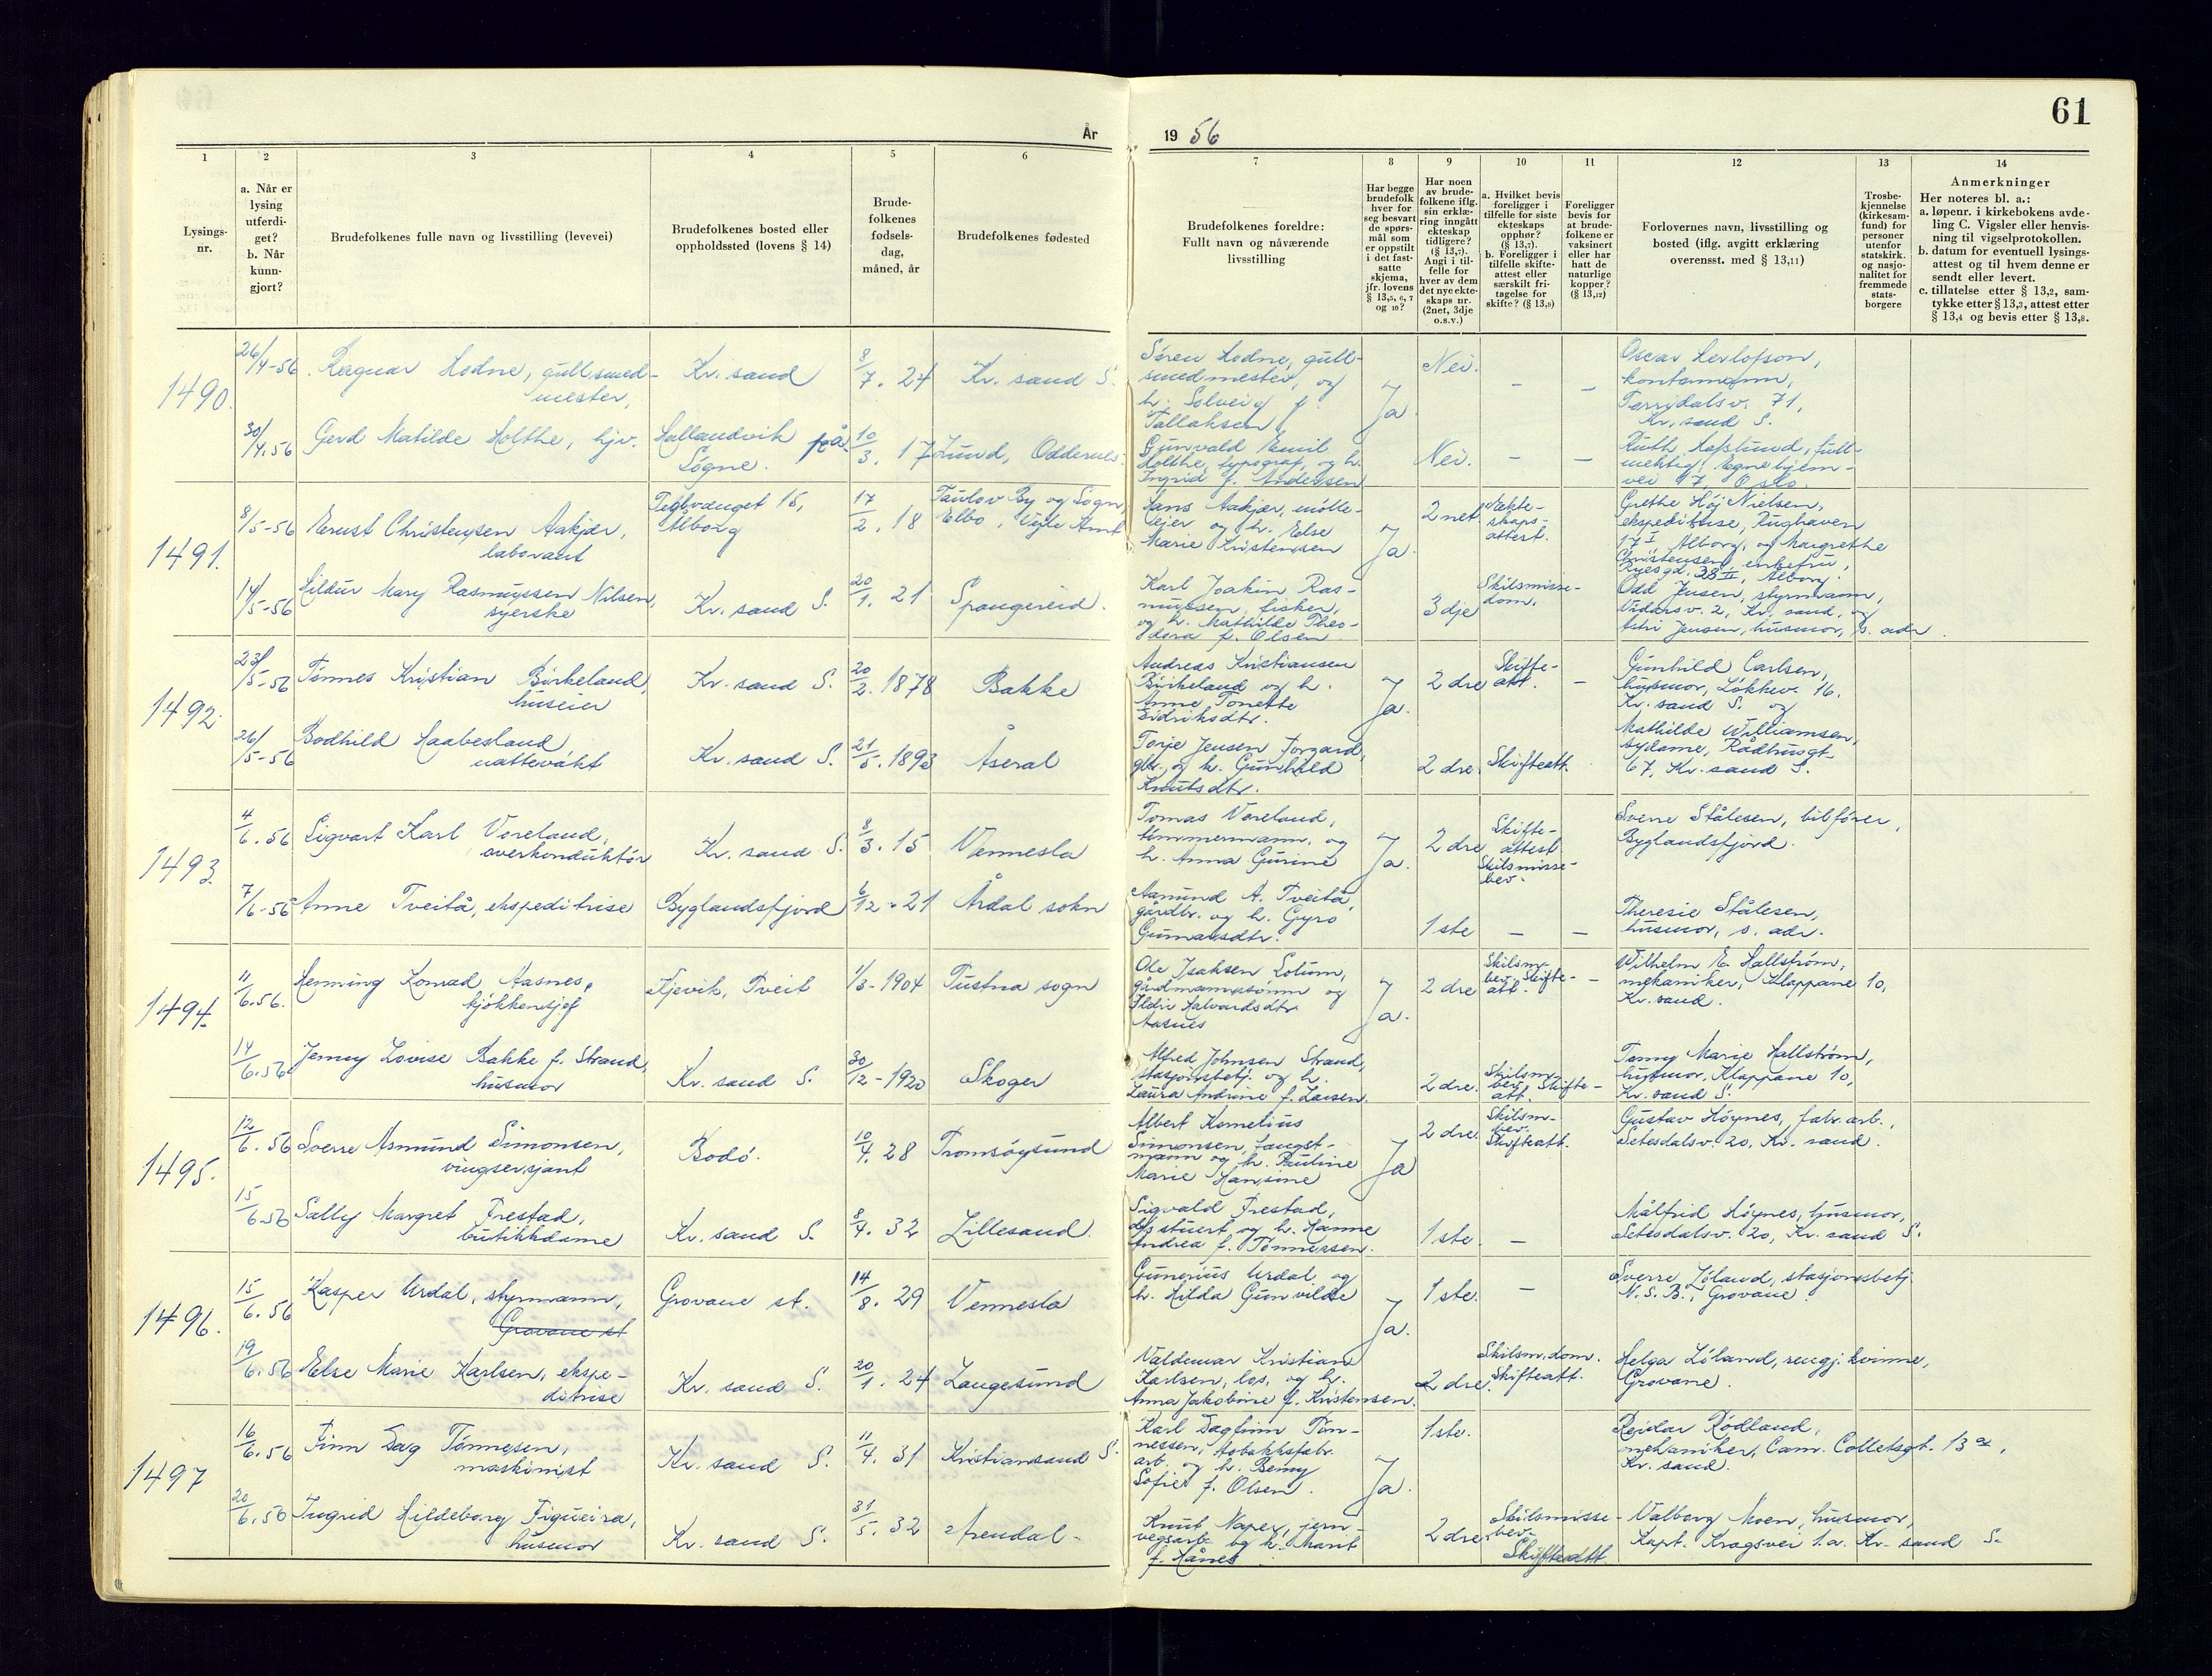 61
År
19 56
1
2
3
4
5
6
7
8
9
10
11
12
13
14
Lysings-
nr.
a. Når er
lysing
utferdi-
get?
b. Når
kunn-
gjort?
Brudefolkenes fulle navn og livsstilling (levevei)
Brudefolkenes bosted eller
oppholdssted (lovens § 14)
Brude-
folkenes
fødsels-
dag,
måned, år
Brudefolkenes fødested
Brudefolkenes foreldre:
Fullt navn og nåværende
livsstilling
Har begge
brudefolk
hver for
seg besvart
de spørs-
mål som
er oppstilt
i det fast-
satte
skjema,
jfr. lovens
§ 13,5, 6, 7
og 10?
Har noen
av brude-
folkene iflg.
sin erklæ-
ring inngått
ekteskap
tidligere?
(§ 13,7).
Angi i til-
felle for
hver av dem
det nye ekte-
skaps nr.
(2net, 3dje
o.s.v.)
a. Hvilket bevis
foreligger i
tilfelle for siste
ekteskaps
opphør?
(§ 13,7).
b. Foreligger i
tilfelle skifte-
attest eller
særskilt fri-
tagelse for
skifte? (§ 13,9)
Foreligger
bevis for
at brude-
folkene er
vaksinert
eller har
hatt de
naturlige
kopper?
(§ 13,12)
Forlovernes navn, livsstilling og
bosted (iflg. avgitt erklæring
overensst. med § 13,11)
Trosbe-
kjennelse
(kirkesam-
fund) for
personer
utenfor
statskirk.
og nasjo-
nalitet for
fremmede
stats-
borgere
Anmerkninger
Her noteres bl. a.:
a. løpenr. i kirkebokens avde-
ling C. Vigsler eller henvis-
ning til vigselprotokollen.
b. datum for eventuell lysings-
attest og til hvem denne er
sendt eller levert.
c. tillatelse etter § 13,2, sam-
tykke etter § 13,3, attest etter
§ 13,4 og bevis etter § 13,8.
1490.
26/4-56. Ragnar Hodne, gullsmed-
mester,
Kr. sand
8/7. 24
Kr. sand S.
Søren Hodne, gull-
smedmester, og
h. Solveig f.
Tallaksen
Ja.
Nei.
–
–
Oscar Herlofson,
kontormann,
Torridalsv. 71,
Kr. sand S.
30/4.56 Gerd Matilde Holthe, hjv.
Hallandvik på
Søgne.
10/3. 17
Lund, Oddernes.
Gunvald Emil
Holthe, typograf, og h.
Ingrid f. Andersen
Nei.
–
–
Ruth Aaslund, full-
mektig, Egnehjem-
vei 17, Oslo.
1491.
8/5-56 Ernst Christensen Aakjær,
laborant
Teglvænget 15,
Ålborg
17/2. 18
Taulov By og Sogn,
Elbo, Vejle Amt
Hans Aakjær, mølle-
ejer og h. Else
Marie Kristensen
Ja.
2 net
Ekte-
skaps-
attest.
Grethe Høj Nielsen,
ekspeditrise, Rughaven
17 I, Ålborg, og Margrethe
Christensen, enkefru,
Ryesgd. 38 II, Ålborg.
14/5-56 Hildur Mary Rasmussen Nilsen,
syerske
Kr. sand S.
20/1. 21
Spangereid.
Karl Joakim Ras-
mussen, fisker,
og h. Mathilde Theo-
dora f. Olsen.
3 dje
Skilsmisse-
dom.
Odd Jensen, styrmann,
Vidarsv. 2, Kr. sand, og
Astri Jensen, husmor, s. adr.
1492.
23/5-56 Tønnes Kristian Birkeland,
huseier
Kr. sand S.
20/2. 1878
Bakke
Andreas Kristiansen
Birkeland og h.
Anne Tonette
Eidriksdtr.
Ja.
2 dre
Skifte-
att.
–
Gunhild Carlsen,
husmor, Løkkev. 16.
Kr. sand S. og
26/5-56 Bodhild Haabesland
nattevakt
Kr. sand S.
21/5. 1893
Åseral
Torje Jensen Torgard,
gbr. og h. Gunhild
Knutsdtr.
2 dre.
Skifteatt.
Mathilde Williamsen,
sydame, Rådhusgt
67, Kr. sand S.
1493.
4/6.56 Sigvart Karl Voreland,
overkonduktør
Kr. sand S.
8/3. 15
Vennesla
Tomas Voreland,
tømmermann, og
h. Anna Gurine
Ja.
2 dre
Skifte-
attest.
Skilsmisse-
bev.
Sverre Stålesen, bilfører,
Byglandsfjord.
7/6-56 Anne Tveitå, ekspeditrise
Byglandsfjord
6/12-21
Årdal sokn
Aamund A. Tveitå,
gårdbr. og h. Gyro
Gunnarsdtr.
1 ste
–
–
Theresie Stålesen,
husmor, s. adr.
1494.
11/6.56. Henning Konrad Aasnes,
kjøkkensjef
Kjevik, Tveit
1/3-1904
Tustna sogn
Ole Isaksen Solum,
gårdmannssønn og
Ildri Halvardsdtr.
Aasnes
Ja.
2 dre
Skilsm-
bev. Skifte-
att.
–
Wilhelm E. Hallstrøm,
mekaniker, Klappane 10,
Kr. sand.
14/6.56 Jenny Lovise Bakke f. Strand,
husmor
Kr. sand S.
30/12-1920
Skoger
Alfred Johnsen Strand,
stasjonsbetj. og h.
Laura Andrine f. Larsen.
2 dre.
Skilsm.
bev. Skifte-
att.
–
Tomy Marie Hallstrøm,
husmor, Klappane 10,
Kr. sand S.
1495.
12/6.56 Sverre Asmund Simonsen,
vingsersjant
Bodø.
10/4. 28
Tromsøysund
Albert Kornelius
Simonsen, fangst-
mann og h. Pauline
Marie Hansine
Ja
2 dre.
Skilsm-
bev.
Skifteatt.
Gustav Høynes, fabr.arb.,
Setesdalsv. 20, Kr. sand.
15/6.56 Sally Margret Frestad,
butikkdame
Kr. sand S.
8/4. 32
Lillesand.
Sigvald Frestad,
d/s stuert og h. Hanne
Andrea f. Tønnessen.
1 ste.
–
Målfrid Høynes, husmor,
Setesdalsv. 20, Kr. sand S.
1496.
15/6.56 Kasper Urdal, styrmann,
Grovane st
Grovane st.
14/8. 29
Vennesla
Gunerius Urdal og
h. Hilda Gunvilde
Ja.
1 ste.
–
Sverre Løland, stasjonsbetj.
N. S. B., Grovane.
19/6.56 Else Marie Karlsen, ekspe-
ditrise
Kr. sand S.
20/1. 24
Langesund
Valdemar Kristian
Karlsen, los, og h.
Anna Jakobine f. Kristensen.
2 dre.
Skilsm. dom.
Skifteatt.
Helga Løland, rengj. kvinne,
Grovane.
1497
16/6.56 Finn Dag Tønnesen,
maskinist
Kr. sand S.
11/4. 31
Kristiansand S.
Karl Dagfinn Tøn-
nessen, tobakksfabr.
arb. og h. Bemy
Sofie f. Olsen.
Ja.
1 ste.
Reidar Rødland,
mekaniker, Cam. Colletsgt. 13 a,
Kr. sand.
20/6.56 Ingrid Hildeborg Figueira,
husmor
Kr. sand S.
31/5. 32
Arendal-
Knut Naper, jern-
vegsarb. og h. Marit
f. Hånes
2 dre
Skilsmisse-
bev.
Skifteatt
Valborg Moen, husmor,
Kapt. Kragsvei 1.a. Kr. sand S.